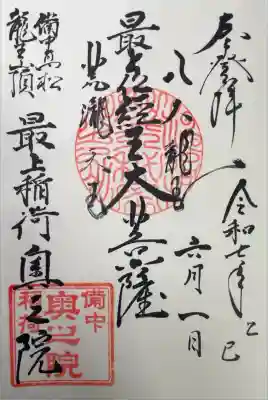 登拝
令和七年乙巳
六月一日
八大龍王
最上位經王大菩薩
備中高松
龍王山頂
最上稲荷奥之院
備中
奥之院
稲荷